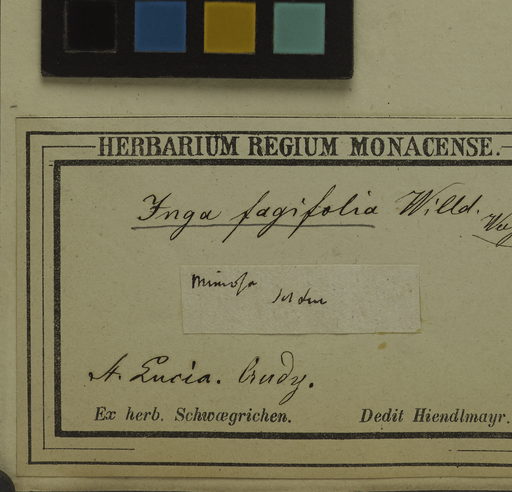 HERBARIUM REGIUM MONACENSE.
Inga fagifolia Willd.
Mimosa
St. Lucia. Crudy.
Ex herb. Schwægrichen. Dedit Hiendlmayr.